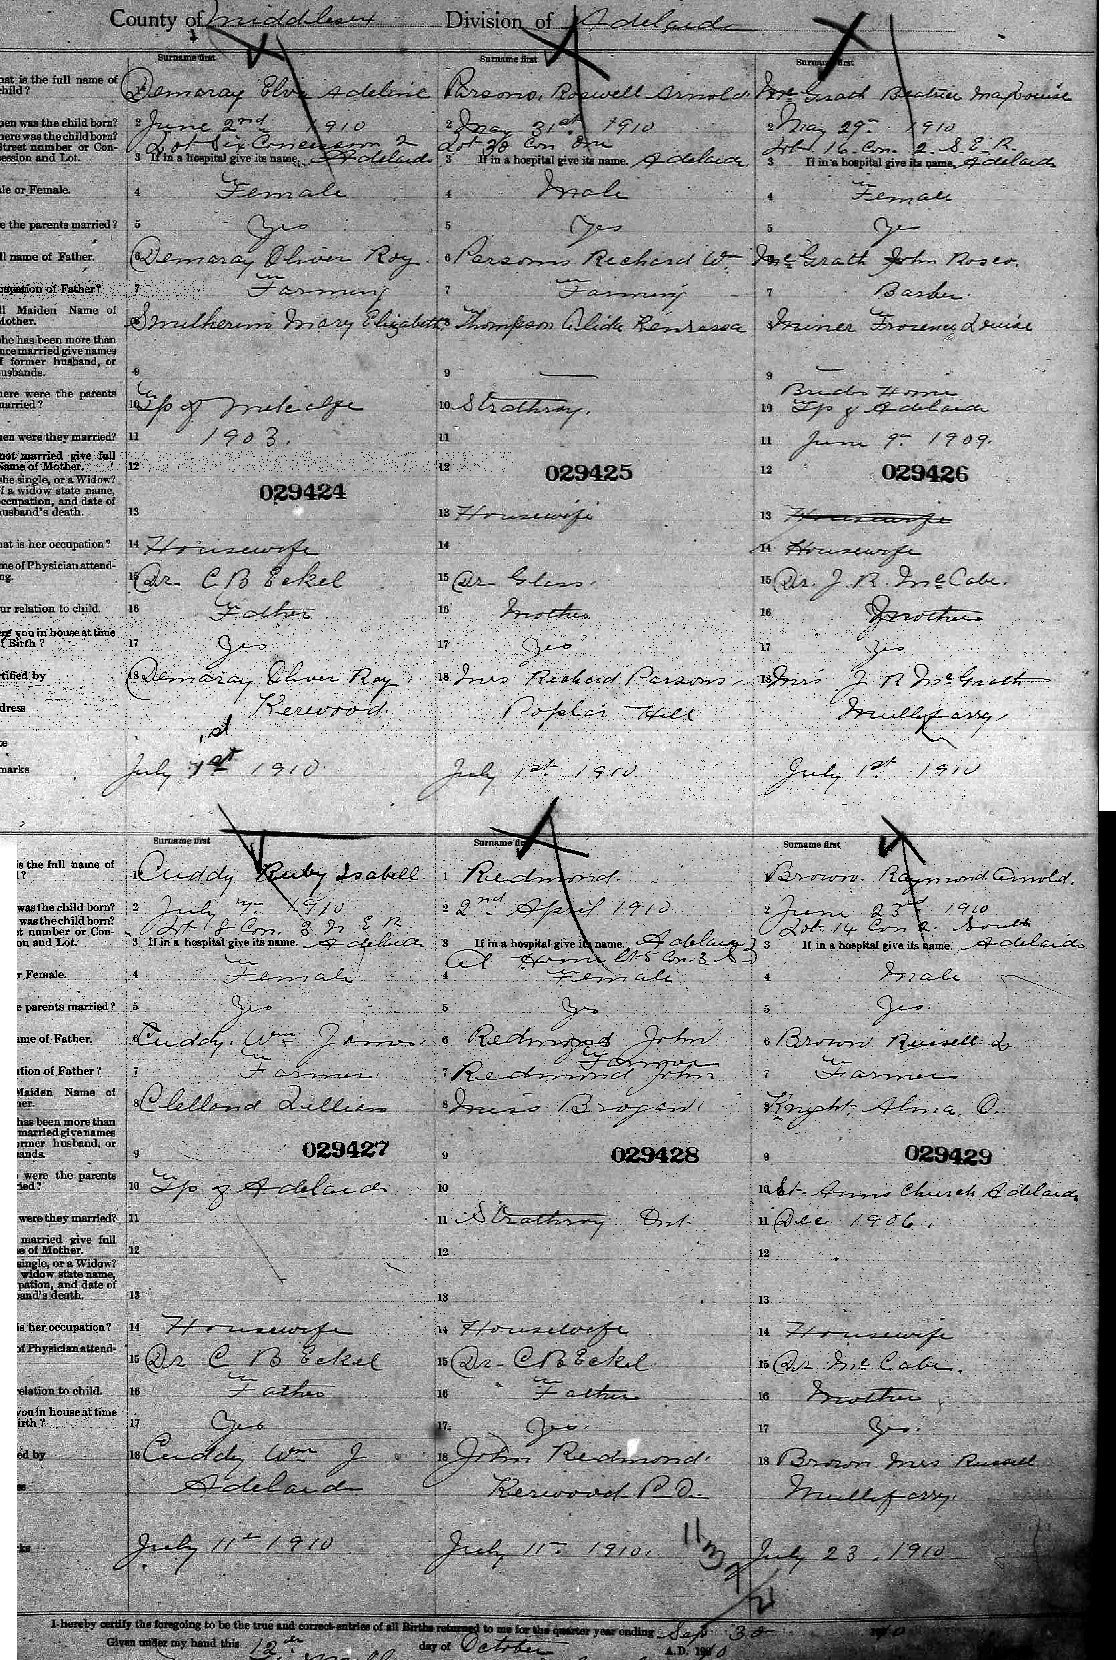 County of Middlesex Division of Adelaide
Surname first Surname first Surname first
hat is the full name of
child?
Demaray Elva Adeline Parsons, Roswell Arnold McGrath Beatrice May Louise
hen was the child born? 2 June 2nd 1910 2 May 31st 1910 2 May 29th 1910
here was the child born?
Street number or Con-
cession and Lot.
Lot Six Concession 2 Lot 20 Con One Lot 16 Con. 2. S. E. R.
3 If in a hospital give its name. Adelaide 3 If in a hospital give its name. Adelaide 3 If in a hospital give its name. Adelaide
le or Female. 4 Female 4 Male 4 Female
e the parents married? 5 Yes 5 Yes 5 Yes
ll name of Father. 6 Demaray Oliver Roy. 6 Parsons Richard Wm 6 McGrath John Rosco.
upation of Father? 7 Farming 7 Farming 7 Barber.
ll Maiden Name of
Mother.
8 Mary Elizabeth 8 Thompson 8 Miner Louise
she has been more than
once married give names
f former husband, or
usbands.
9 9 — 9
here were the parents
married?
10 Tp of Metcalfe 10 Strathroy. 10 Brides Home
Tp of Adelaide
hen were they married? 11 1903. 11 11 June 9th 1909.
not married give full
Name of Mother.
12 12 12
029424 029425 029426
she single, or a Widow?
f a widow state name,
occupation, and date of
husband's death.
13 13 Housewife 13 Housewife
hat is her occupation? 14 Housewife 14 14 Housewife
me of Physician attend-
ng.
15 Dr. C B Eckel 15 Dr. Glass. 15 Dr. J. R. McCabe.
ur relation to child. 16 Father 16 Mother 16 Mother
ere you in house at time
f Birth? 17 Yes 17 Yes 17 Yes
rtified by 18 Demaray Oliver Roy. 18 Mrs Richard Parsons 18 Mrs J R McGrath
dress Kerwood Poplar Hill Mullifarry
st
marks July 1st 1910 July 1st 1910 July 1st 1910
Surname first Surname first Surname first
is the full name of
1 Cuddy Ruby Isabell 1 Redmond. Brown. Raymond Arnold.
was the child born? 2 July 1910 2 2nd April 1910 2 June 23rd 1910
was the child born?
t number or Con-
on and Lot.
Lot 8 Con. 3 N E R Lot 14 Con 2. South
3 If in a hospital give its name. Adelaide 3 If in a hospital give its name. Adelaide 3 If in a hospital give its name. Adelaide
At Home Lt 5 Con. 3 S.
r Female. 4 Female 4 Female 4 Male
e parents married? 5 Yes 5 Yes 5 Yes.
ame of Father. 6 Cuddy. Wm James 6 Redmond John 6 Brown Russell L
Farmer
ation of Father? 7 Farmer 7 Redmond John 7 Farmer
Maiden Name of
her.
8 Clelland Lillian 8 Miss Brogan 8 Knight. Alma. O.
has been more than
married give names
ormer husband, or
ands.
029427 029428 029429
9 9 9
were the parents
ied?
10 Tp of Adelaide 10 10 St. Anns Church Adelaide
were they married? 11 11 Strathroy Ont. 11 Dec 1906.
married give full
e of Mother. 12 12 12
single, or a Widow?
widow state name,
pation, and date of
band's death.
13 13 13
is her occupation? 14 Housewife 14 Housewife 14 Housewife
of Physician attend-
15 Dr C B Eckel 15 Dr. C B Eckel 15 Dr McCabe.
elation to child. 16 Father 16 Father 16 Mother
you in house at time
irth? 17 Yes 17 Yes. 17 Yes.
ed by 18 Cuddy Wm J 18 John Redmond. 18 Brown Mrs Russell
Adelaide Kerwood P.O. Mullifarry.
ks July 11th 1910 July 11th 1910. July 23. 1910
I hereby certify the foregoing to be the true and correct entries of all Births returned to me for the quarter year ending Sep 30 1910
Given under my hand this 12th day of October A.D. 1910